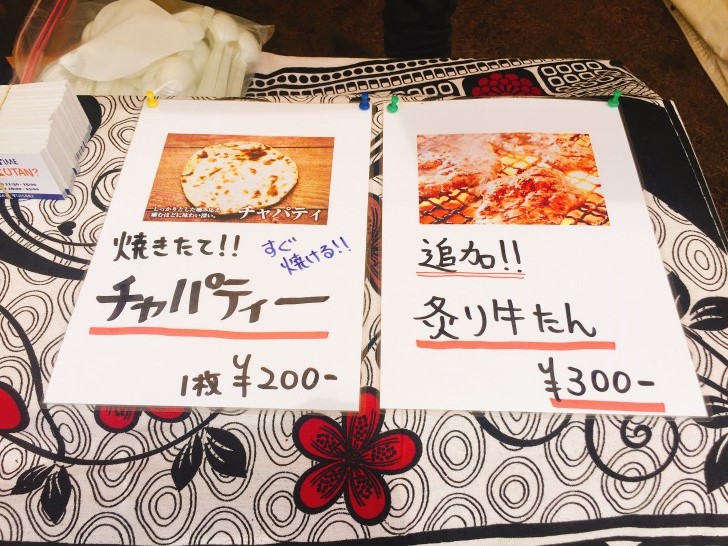 TIME
CUTAN?
しっかりとした噛みごたえ
噛むほどに味わい深い。
チャパティ
焼きたて!!
すぐ
焼ける!!
チャパティー
1枚 ¥200-
追加!!
炙り牛たん
¥300-